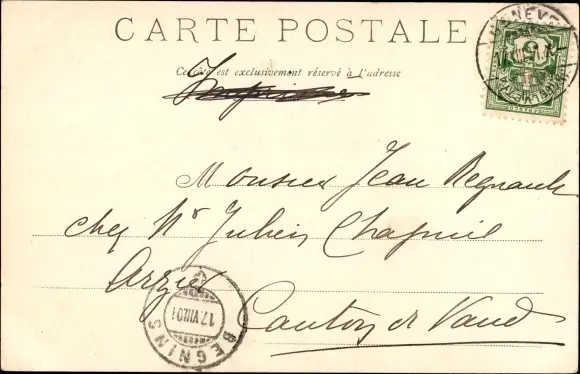 CARTE POSTALE
Ce côté est exclusivement réservé à l'adresse
Imprimé
Monsieur Jean Regnault
chez Mr Julien Chapuis
Arzier
Canton de Vaud
BEGNINS
17.VIII.01